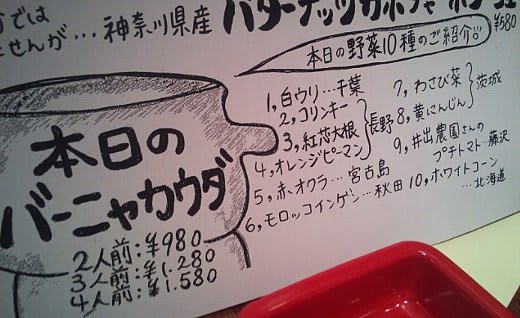 では
せんが…神奈川県産
バターナッツカボチャ
¥580
本日の野菜10種のご紹介♡
1, 白ウリ…千葉
2, コリンキー
3, 紅芯大根
4, オレンジピーマン
長野
5, 赤オクラ…宮古島
6, モロッコインゲン…秋田
7, わさび菜
8, 黄にんじん
茨城
9, 井出農園さんの
プチトマト…藤沢
10, ホワイトコーン
…北海道
本日の
バーニャカウダ
2人前:¥980
3人前:¥1.280
4人前:¥1.580